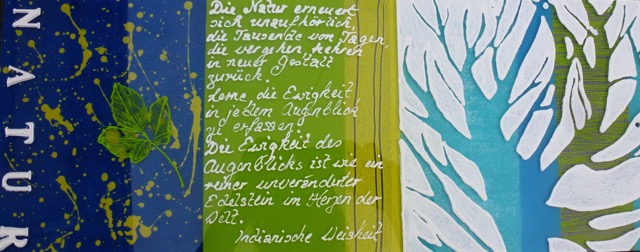 NATUR
Die Natur erneuert
sich unaufhörlich,
die Tausende von Tagen,
die vergehen, kehren
in neuer Gestalt
zurück.
Lerne die Ewigkeit
in jedem Augenblick
zu erfassen
Die Ewigkeit des
Augenblicks ist wie ein
reiner unveränderter
Edelstein im Herzen der
Welt.
Indianische Weisheit